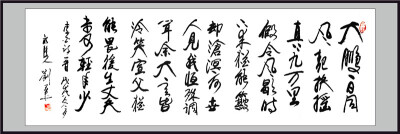 大鵬一日同
风起扶摇
直上九万里
假令风歇时
下来猶能簸
却滄溟水世
人見我恒殊調
聞余大言皆
冷笑宣父猶
能畏後生丈夫
未可輕年少
李白诗一首戊戌